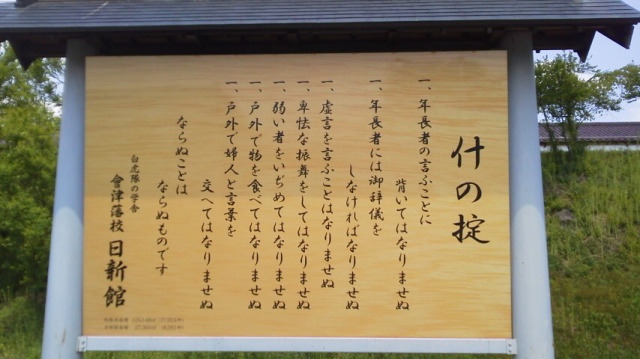 什の掟
一、年長者の言ふことに
背いてはなりませぬ
一、年長者には御辞儀を
しなければなりませぬ
一、虚言を言ふことはなりませぬ
一、卑怯な振舞をしてはなりませぬ
一、弱い者をいぢめてはなりませぬ
一、戸外で物を食べてはなりませぬ
一、戸外で婦人と言葉を
交へてはなりませぬ
ならぬことは
ならぬものです
白虎隊の学舎
會津藩校 日新館